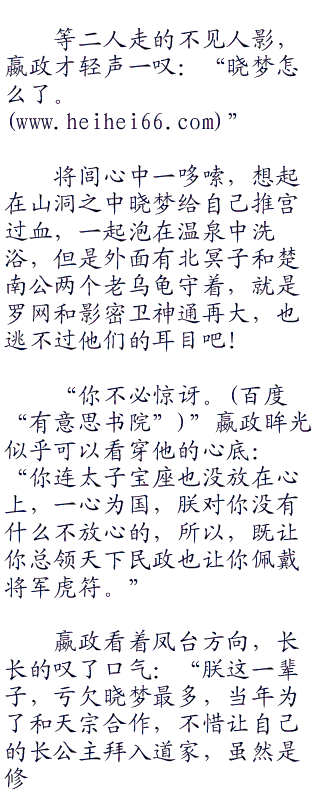 等二人走的不见人影，
嬴政才轻声一叹：“晓梦怎
么了。
(www.heihei66.com)”
将闾心中一哆嗦，想起
在山洞之中晓梦给自己推宫
过血，一起泡在温泉中洗
浴，但是外面有北冥子和楚
南公两个老乌龟守着，就是
罗网和影密卫神通再大，也
逃不过他们的耳目吧！
“你不必惊讶。(百度
“有意思书院”)”嬴政眸光
似乎可以看穿他的心底：
“你连太子宝座也没放在心
上，一心为国，朕对你没有
什么不放心的，所以，既让
你总领天下民政也让你佩戴
将军虎符。”
嬴政看着凤台方向，长
长的叹了口气：“朕这一辈
子，亏欠晓梦最多，当年为
了和天宗合作，不惜让自己
的长公主拜入道家，虽然是
修